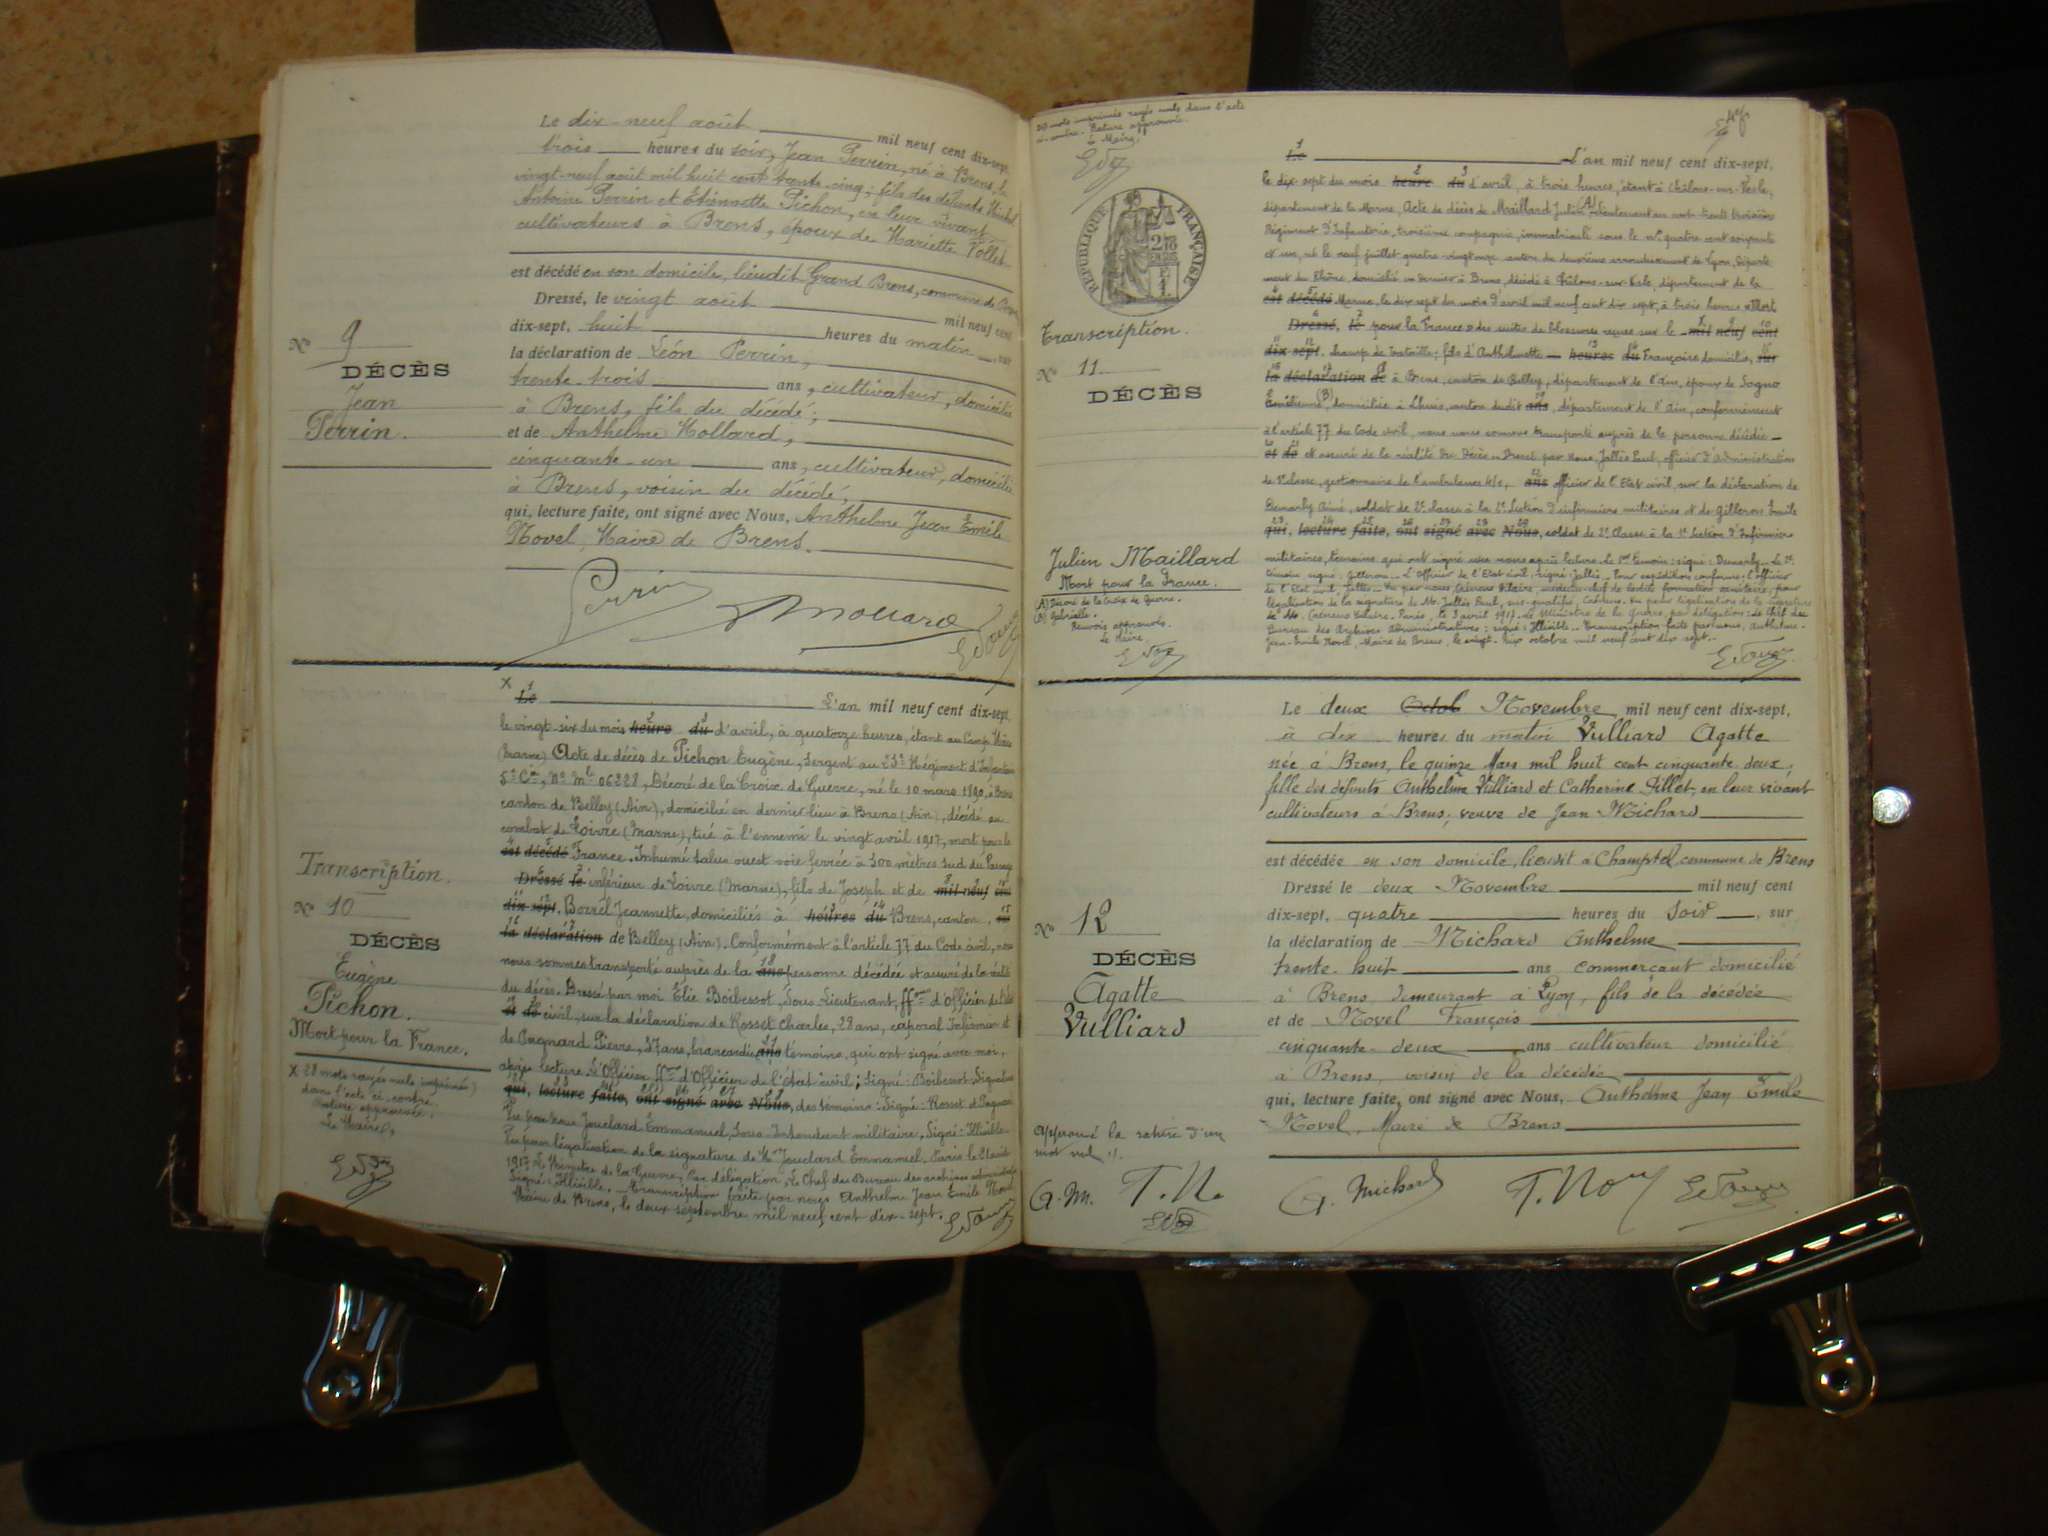 Le dix-neuf août mil neuf cent dix-sept,
trois heures du soir, Jean Perrin, né à Brens, le
vingt-neuf août mil huit cent trente-cinq, fils des défunts Michel
Antoine Perrin et Etiennette Pichon, en leur vivant
cultivateurs à Brens, époux de Mariette Vollet
est décédé en son domicile, lieudit Grand Brens, commune de Brens
Dressé, le vingt août mil neuf cent
dix-sept, huit heures du matin, sur
la déclaration de Léon Perrin,
trente-trois ans, cultivateur, domicilié
à Brens, fils du décédé;
et de Anthelme Mollard,
cinquante-un ans, cultivateur, domicilié
à Brens, voisin du décédé,
qui, lecture faite, ont signé avec Nous, Anthelme Jean Emile
Novel, Maire de Brens.
N° 9
DÉCÈS
Jean
Perrin.
Perrin
Le L'an mil neuf cent dix-sept,
le vingt-six du mois heure du d'avril, à quatorze heures, étant au Camp
(Marne) Acte de décès de Pichon Eugène, Sergent au 23e Régiment d'Infanterie
5e Cie, No Mle 06328, Décoré de la Croix de Guerre, né le 10 mars 1890, à Brens
canton de Belley (Ain), domicilié en dernier lieu à Brens (Ain), décédé au
combat de Loivre (Marne), tué à l'ennemi le vingt avril 1917, mort pour la
est décédé France. Inhumé talus ouest voie ferrée à 300 mètres sud du Passage
Dressé le inférieur de Loivre (Marne), fils de Joseph et de mil neuf cent
dix-sept, Borrel Jeannette, domiciliés à heures du Brens, canton, sur
la déclaration de de Belley (Ain). Conformément à l'article 77 du Code civil, nous
nous sommes transporté auprès de la ans personne décédée et assuré de la réalité
du décès. Dressé par moi Elie Boibessot, Sous-Lieutenant, ff d'Officier de l'état
et de civil, sur la déclaration de Rosset Charles, 28 ans, caporal Infirmier et
de Pierre, 37 ans, brancardier ans témoins, qui ont signé avec moi,
après lecture. L'Officier ff d'Officier de l'état civil; Signé: Boibessot. Signature
qui, lecture faite, ont signé avec Nous, des témoins: Signé: Rosset et
Vu par nous Jouclard Emmanuel, Sous-Intendant militaire, Signé: Illisible
Vu pour légalisation de la signature de Mr Jouclard Emmanuel. Paris le
1917 Le Ministre de la Guerre, Par délégation, Le Chef du Bureau des archives administratives
Signé: Illisible. Transcription faite par nous Anthelme Jean Emile Novel
Maire de Brens, le deux septembre mil neuf cent dix-sept.
Transcription.
N° 10
DÉCÈS
Eugène
Pichon.
Mort pour la France.
X 28 mots rayés nuls imprimés
dans l'acte ci-contre
rature approuvée,
Le Maire,
mots imprimés rayés nuls dans l'acte
ci-contre. Rature approuvée.
Le Maire,
RÉPUBLIQUE FRANÇAISE
Le L'an mil neuf cent dix-sept,
le dix-sept du mois heure du d'avril, à trois heures, étant à Châlons-sur-Vesle,
département de la Marne, Acte de décès de Maillard Julien (A) lieutenant au cent trente troisième
Régiment d'Infanterie, troisième compagnie, immatriculé sous le n° quatre cent soixante
et un, né le neuf juillet quatre vingt onze canton du deuxième arrondissement de Lyon, départe
ment du Rhône, domicilié en dernier à Brens, décédé à Châlons-sur-Vesle, département de la
est décédé Marne, le dix sept du mois d'avril mil neuf cent dix sept, à trois heures, Mort
Dressé, le pour la France des suites de blessures reçues sur le mil neuf cent
dix-sept, champ de bataille; fils d'Anthelmette heures du Françoise domiciliée, sur
la déclaration de à Brens, canton de Belley, département de l'Ain, époux de Sogno
Emélienne (B), domiciliée à Lhuis, canton dudit ans, département de l'Ain, conformément
à l'article 77 du Code civil, nous nous sommes transporté auprès de la personne décédée
et de et assuré de la réalité du Décès. Dressé par Nous, Jallès Paul, officier d'Administration
de 2e classe, gestionnaire de l'ambulance ans officier de l'Etat civil, sur la déclaration de
Aimé, soldat de 2e classe à la section d'infirmiers militaires et de Gilleron Emile
qui, lecture faite, ont signé avec Nous, soldat de 2e Classe à la section d'Infirmiers
militaires, témoins qui ont signé avec nous après lecture. Le 1er témoin: signé: Le 2e
témoin signé: Gilleron. L'Officier de l'Etat civil: signé: Jallès. Pour expédition conforme: l'officier
de l'Etat civil, Jallès. Vu par nous Hilaire, médecin-chef de ladite formation sanitaire, pour
légalisation de la signature de Mr. Jallès Paul, sus-qualifié, Vu pour légalisation de la signature
de Mr. Hilaire. Paris, le 3 avril 1917. Le Ministre de la Guerre, par délégation: Le Chef du
Bureau des Archives Administratives: signé: Illisible. Transcription faite par nous, Anthelme-
Jean-Emile Novel, Maire de Brens, le vingt-six octobre mil neuf cent dix sept.
Transcription.
N° 11
DÉCÈS
Julien Maillard
Mort pour la France.
(A) Décoré de la Croix de Guerre.
(B) Gabrielle.
Renvois approuvés.
Le Maire
Le deux Octob Novembre mil neuf cent dix-sept,
à dix heures du matin Vulliard Agatte
née à Brens, le quinze Mars mil huit cent cinquante deux,
fille des défunts Anthelme Vulliard et Catherine Pillet, en leur vivant
cultivateurs à Brens, veuve de Jean Michard
est décédée en son domicile, lieudit à Champtel commune de Brens
Dressé le deux Novembre mil neuf cent
dix-sept, quatre heures du Soir, sur
la déclaration de Michard Anthelme
trente-huit ans commerçant domicilié
à Brens, demeurant à Lyon, fils de la décédée
et de Novel François
cinquante-deux ans cultivateur domicilié
à Brens, voisin de la décédée
qui, lecture faite, ont signé avec Nous, Anthelme Jean Emile
Novel, Maire de Brens
N° 12
DÉCÈS
Agatte
Vulliard
Approuvé la rature d'un
mot nul
A. M. F. N.
A. Michard